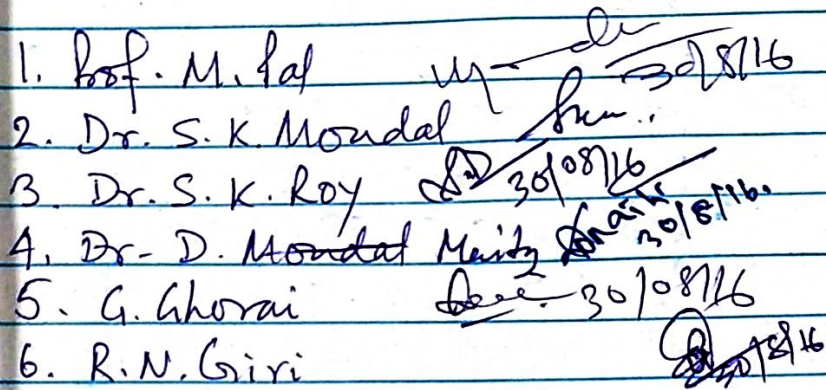 1. Prof. M. Pal 30/8/16
2. Dr. S. K. Mondal
3. Dr. S. K. Roy 30/08/16
4. Dr. D. Mondal Maity 30/8/16.
5. G. Ghorai 30/08/16
6. R. N. Giri 30/8/16